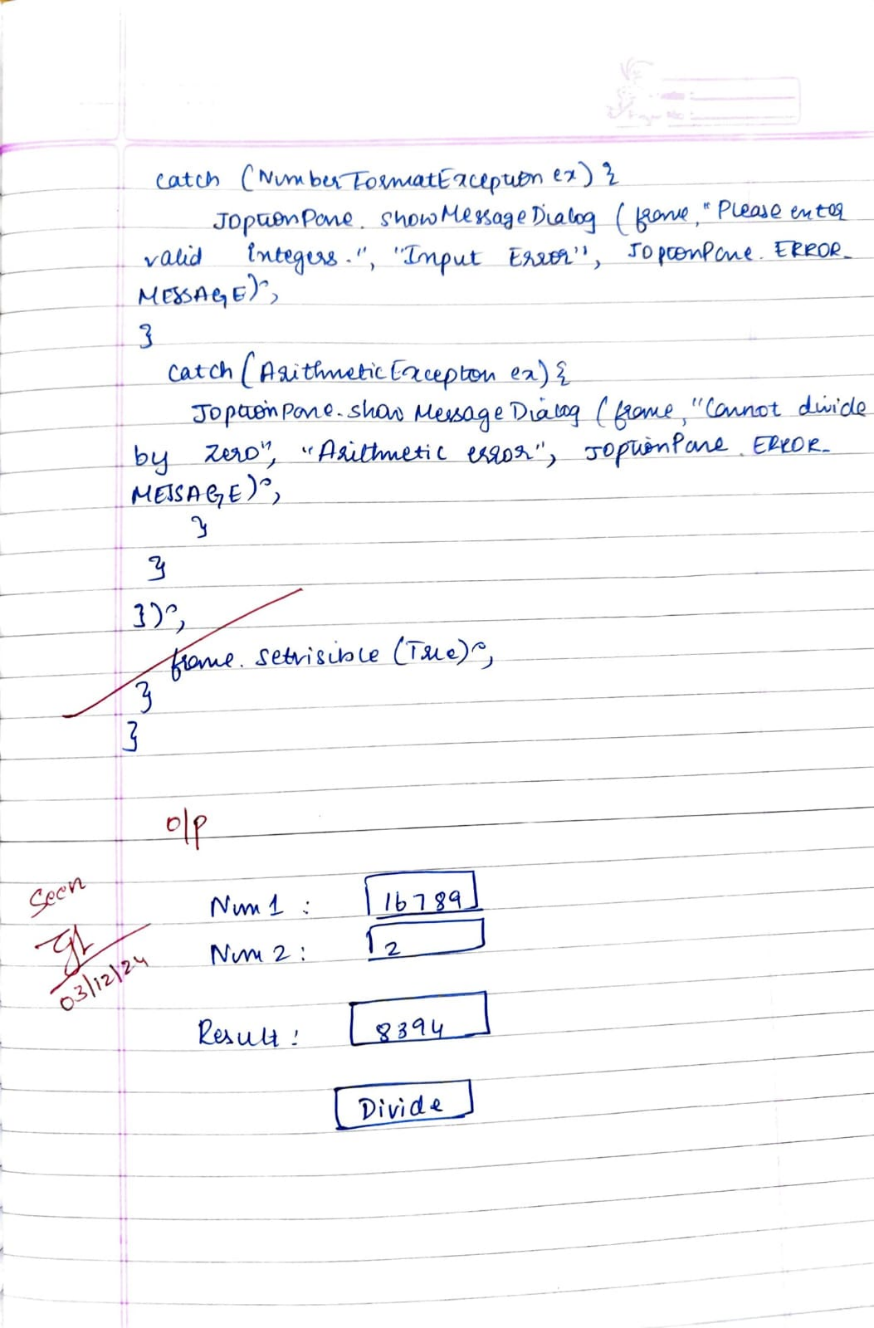 catch (NumberFormatException ex) {
JOptionPane. showMessageDialog (frame, "Please enter
valid integers.", "Input Error", JOptionPane. ERROR_
MESSAGE);
}
catch (ArithmeticException ex) {
JOptionPane. show Message Dialog (frame, "Cannot divide
by zero", "Arithmetic error", JOptionPane. ERROR_
MESSAGE);
}
}
});
frame. setvisible (True);
}
}
O/P
Seen
03/12/24
Num 1 : 16789
Num 2 : 2
Result : 8394
Divide